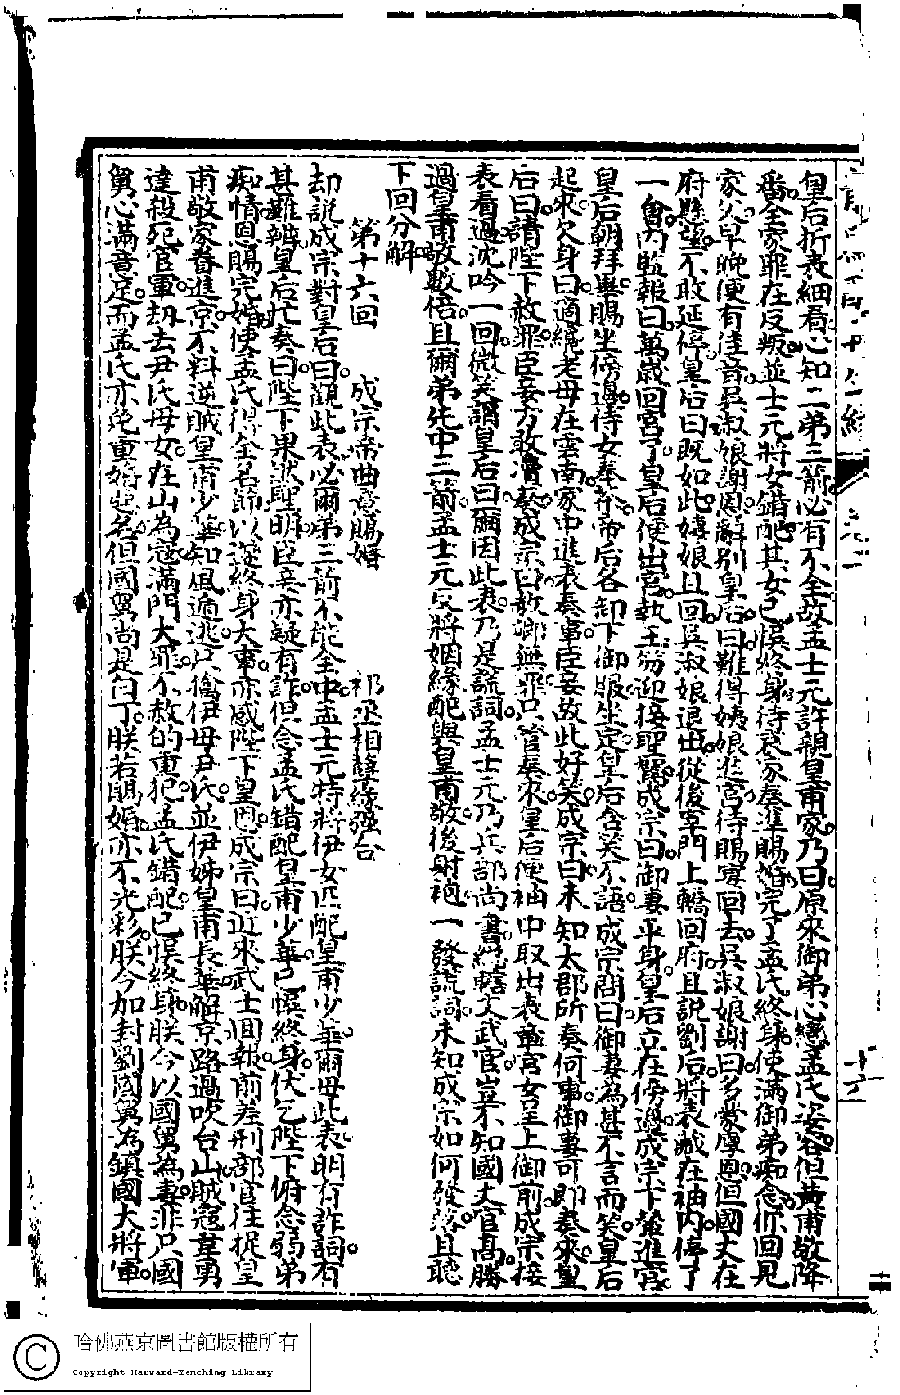 皇后折表細看心知二弟三箭必有不全故孟士元許親皇甫家乃曰原來御弟心戀孟氏姿容但黃甫敬降
番全家罪在反叛並士元將女錯配其女已悞終身待哀家奏准賜婚完了孟氏終身使滿御弟痴念你回見
家父早晚便有佳音吳淑娘謝恩辭別皇后曰難得姨娘進宮待賜宴回去吳淑娘謝曰多蒙厚恩但國丈在
府懸望不敢延停皇后曰既如此嬸娘且回吳淑娘退出從後宰門上轎回府且說劉后將表藏在袖內停了
一會內監報曰萬歲回宮了皇后便出宮執玉笏迎接聖駕成宗曰御妻平身皇后立在傍邊成宗下輦進宮
皇后朝拜畢賜坐傍邊侍女奉茶帝后各卸下御服坐定皇后含笑不語成宗問曰御妻為甚不言而笑皇后
起來欠身曰適纔老母在雲南家中進表奏事臣妾故此好笑成宗曰未知太郡所奏何事御妻可即奏來皇
后曰請陛下赦罪臣妾方敢瀆奏成宗曰赦卿無罪只管奏來皇后便袖中取出表章宮女呈上御前成宗接
表看過沈吟一回微笑謂皇后曰爾因此表乃是謊詞孟士元乃兵部尚書總轄文武官豈不知國丈官高勝
過皇甫敬數倍且爾弟先中三箭孟士元反將姻緣配與皇甫敬後射袍一發謊詞未知成宗如何發落且聽
下回分解
第十六回　成宗帝曲意賜婚　祁丞相夤緣強合
却說成宗對皇后曰觀此表必爾弟三箭不能全中孟士元特將伊女匹配皇甫少華爾母此表明有詐詞有
甚難辨皇后忙奏曰陛下果然聖明臣妾亦疑有詐但念孟氏錯配皇甫少華已悞終身伏乞陛下俯念弱弟
痴情恩賜完婚使孟氏得全名節以從終身大事亦感陛下皇恩成宗曰近來武士回報前差刑部官往捉皇
甫敬家眷進京不料逆賊皇甫少華知風遁逃只擒伊母尹氏並伊姊皇甫長華解京路過吹台山賊寇韋勇
達殺死官軍劫去尹氏母女在山為寇滿門大罪不赦的重犯孟氏錯配已悞終身朕今以國舅為妻非只國
舅心滿意足而孟氏亦免重婚惡名但國舅尚是白丁朕若賜婚亦不光彩朕今加封劉國舅為鎮國大將軍
哈佛燕京圖書館版權所有
Copyright Harvard-Yenching Library